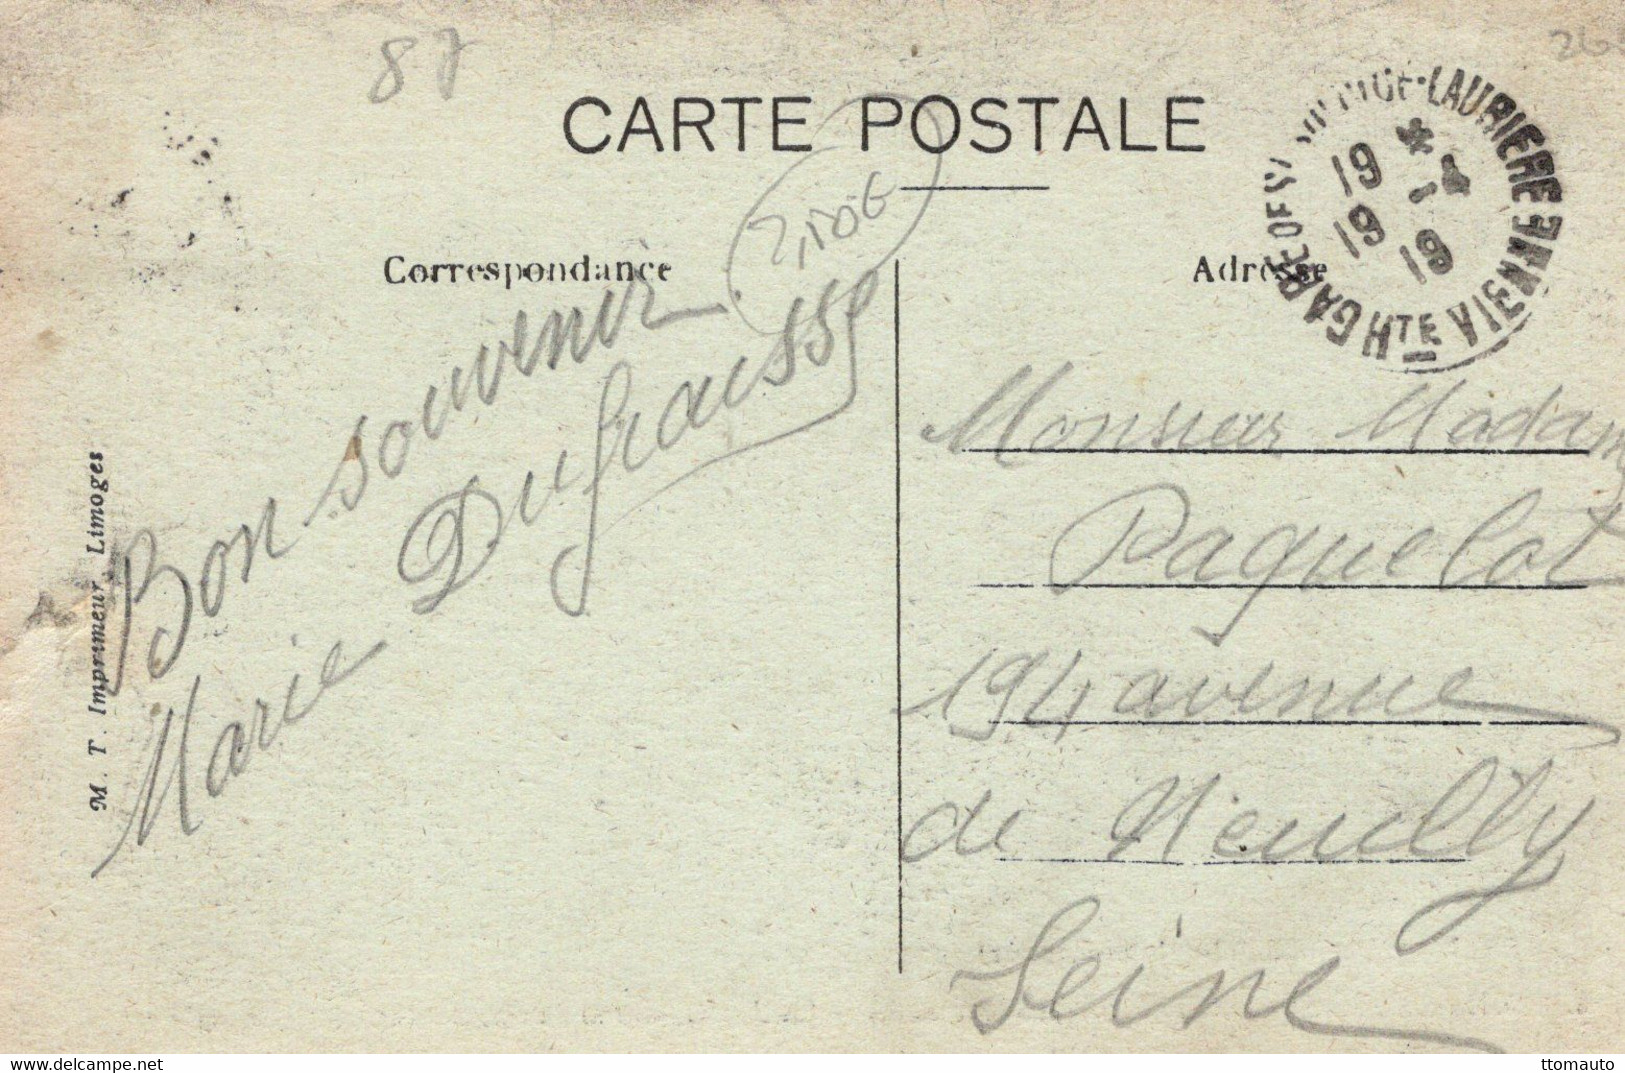 87
CARTE POSTALE
Correspondance
Adresse
GARE DE ST SULPICE-LAURIERE
HTE VIENNE
19
19
19
2,50€
Bon souvenir
Marie Dufraisse
Monsieur Madame
Paquelot
194 avenue
de Neuilly
Seine
M. T. Imprimeur, Limoges
delcampe.net
ttomauto